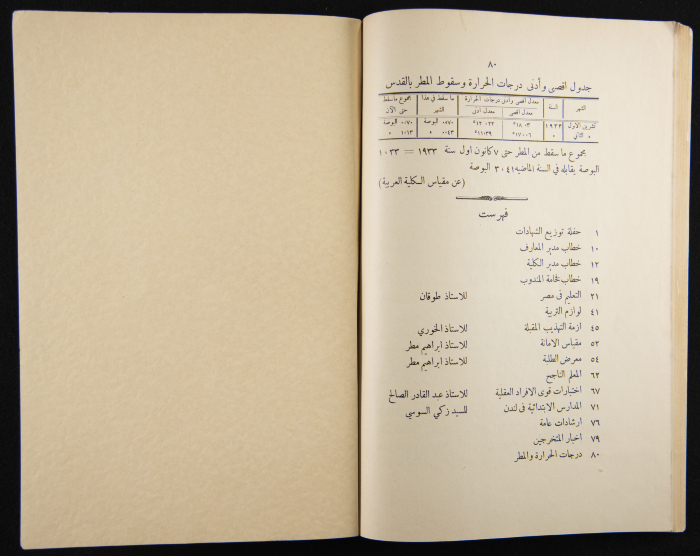 ٨٠
جدول اقصى وأدنى درجات الحرارة وسقوط المطر بالقدس
الشهر السنة معدل اقصى وأدنى درجات الحرارة ما سقط في هذا الشهر مجموع ما سقط حتى الآن
معدل اقصى معدل أدنى
تشرين الاول ١٩٣٣ ٠٧٠ البوصة ٠٧٠ البوصة
« الثاني « ١٧٠٠٦ ١١٠٣٩
مجموع ما سقط من المطر حتى ٧ كانون اول سنة ١٩٣٣ = ١٠٣٣
البوصة يقابله في السنة الماضية ٣٠٤١ البوصة
(عن مقياس الكلية العربية)
فهرست
١ حفلة توزيع الشهادات
١٠ خطاب مدير المعارف
١٢ خطاب مدير الكلية
١٩ خطاب فخامة المندوب
٢١ التعليم في مصر للاستاذ طوقان
٤١ لوازم التربية
٤٥ ازمة التهذيب المقبلة للاستاذ الخوري
٥٢ مقياس الامانة للاستاذ ابراهيم مطر
٥٤ معرض الطلبة للاستاذ ابراهيم مطر
٦٢ المعلم الناجح
٦٧ اختبارات قوى الافراد العقلية للاستاذ عبد القادر الصالح
٧١ المدارس الابتدائية في لندن للسيد زكي السوسي
٧٦ ارشادات عامة
٧٩ اخبار المتخرجين
٨٠ درجات الحرارة والمطر